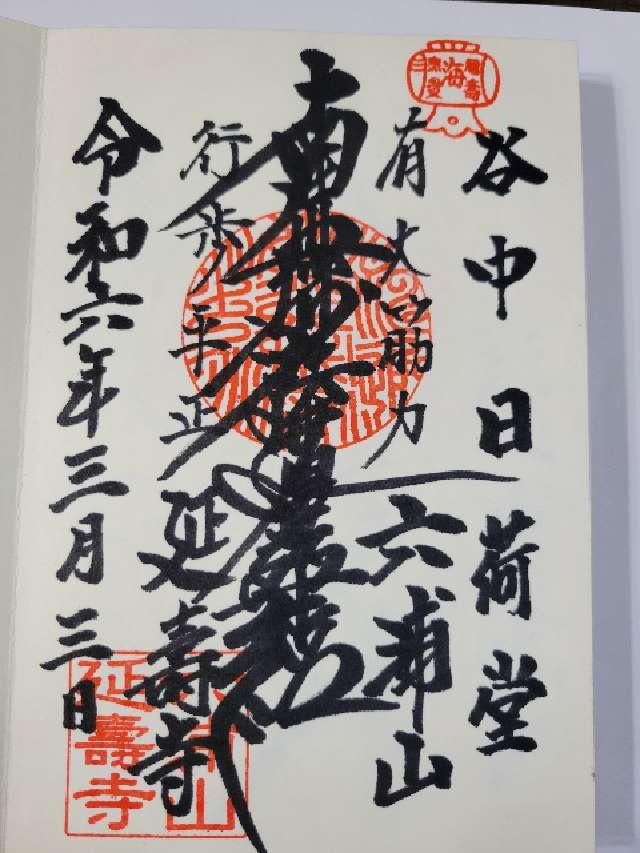 谷中日荷堂
有大筋力
六浦山
南無妙法蓮華経
行歩平正
延壽寺
令和六年三月三日
延壽寺